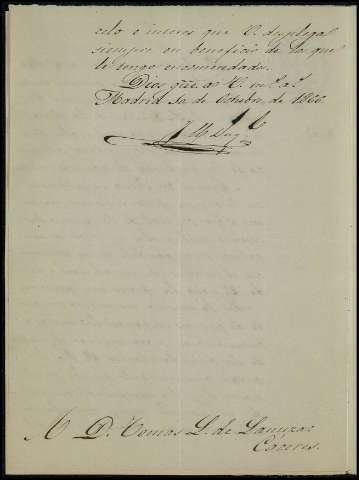 celo é interes que V. desplega
siempre en beneficio de los que
le tengo encomendado.
Dios gue. á V. ms. as.
Madrid de Octubre de 1866
A D. Tomas L. de Lanuza
Cáceres.